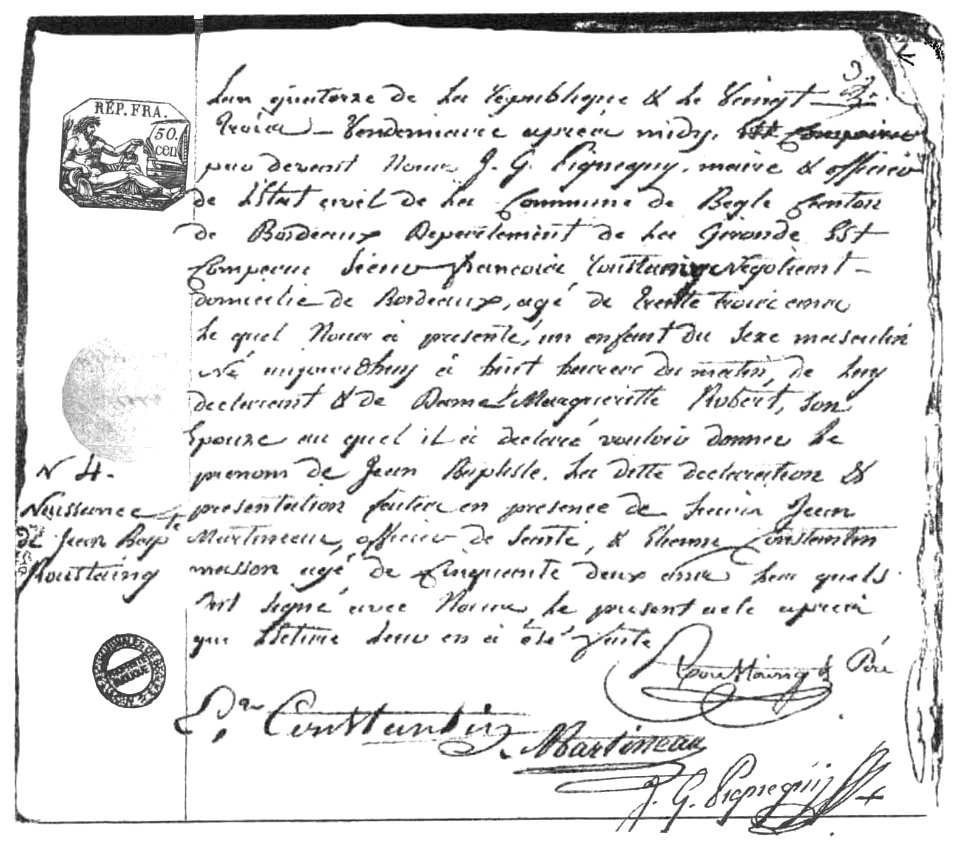 RÉP. FRA.
50.
cen
Lan quatorze de La republique & Le Vingt
troisia Vendemiaire apres midy,
par devant Nous J. G. Pigneguy, maire & officier
de L'Etat civil de La Commune de Begle Canton
de Bordeaux Departement de La Gironde Est
Comparu Sieur francois Roustaing Negotiant
domicilie de Bordeaux, agé de trente trois ans
Le quel Nous a presenté, un enfant du Sexe masculin
Né aujourdhuy à huit heures du matin, de Luy
declarant & de Dame Margueritte Robert, Son
Epouze au quel il a declaré vouloir donner Le
prenom de Jean Baptiste. La ditte declaration &
presentation faites en presence de Jean
Martineau, officier de Santé, & Etienne Constantin
masson agé de Cinquante deux ans Les quels
ont Signé avec Nous Le present acte après
que Lecture Leur en a été faite
N 4.
Naissance
de Jean Bapte
Roustaing
Roustaing Père
Constantin
Martineau
J. G. Pigneguy